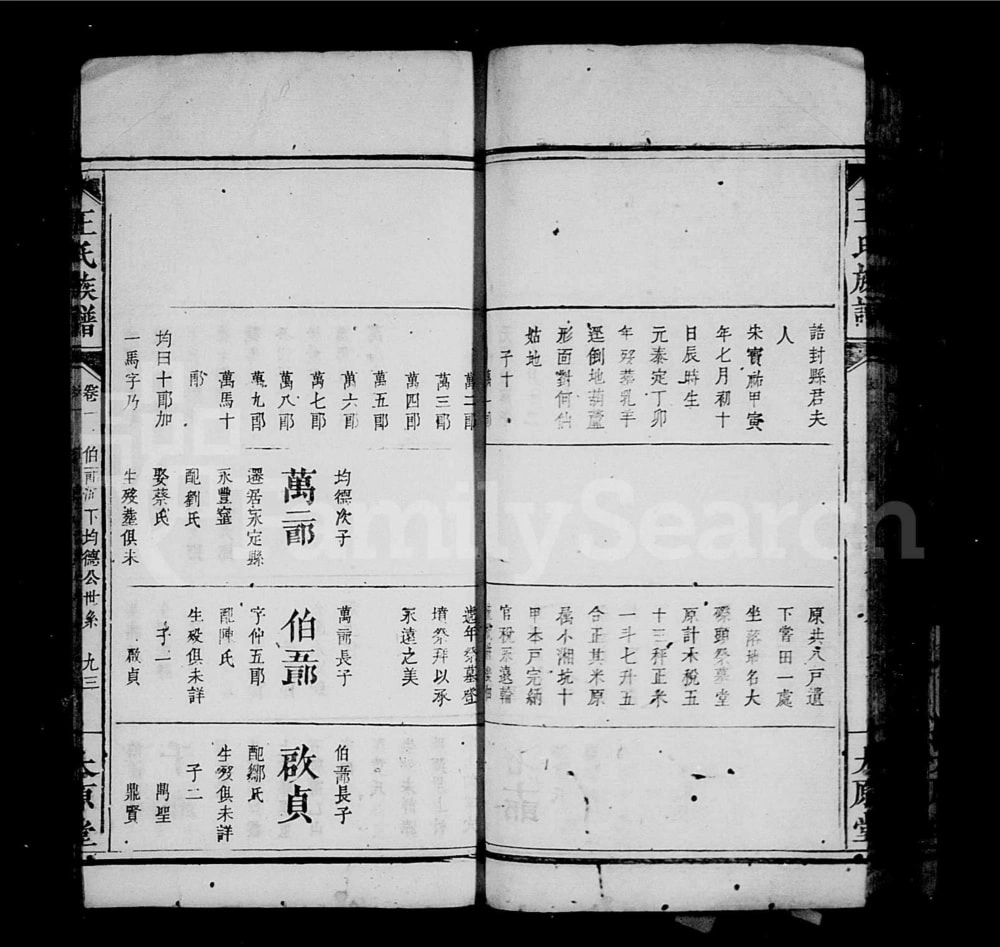 王氏族譜
誥封縣君夫
人
宋寶祐甲寅
年七月初十
日辰時生
元泰定丁卯
年歿葬乳羊
逕倒地葫蘆
形面對何仙
姑地
子十
萬一郎
萬二郎
萬三郎
萬四郎
萬五郎
萬六郎
萬七郎
萬八郎
萬九郎
萬馬十
郎
均曰十郎加
一馬字乃
均德次子
萬二郎
遷居永定縣
永豐窰
配劉氏
娶蔡氏
生殁葬俱未
原共八戶遺
下嘗田一處
坐落地名大
磜頭祭墓堂
原計木稅五
十三秤正米
一斗七升五
合正其米原
屬小湘坑十
甲本戶完納
官稅永遠輪
遞年祭墓登
墳祭拜以承
永遠之美
萬二郎長子
伯五郎
字仲五郎
配陳氏
生歿俱未詳
子一
啟貞
伯五郎長子
啟貞
配鄒氏
生歿俱未詳
子二
鼎聖
鼎賢
太原堂
王氏族譜
卷一
下均德公世系
九三
太原堂
FamilySearch